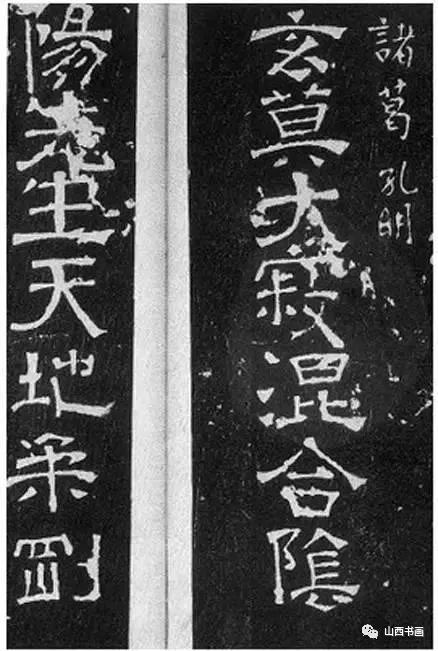 諸葛孔明
玄莫大寂混合陰
陽先生天地柔剛
山西书画